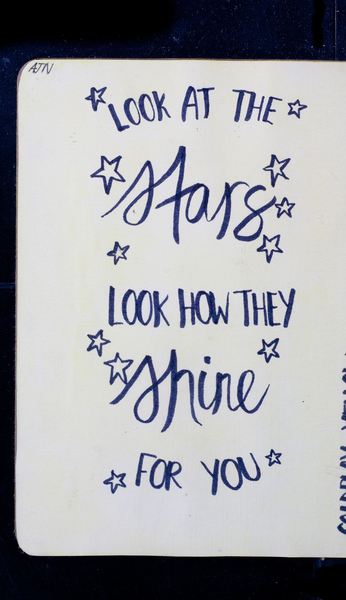 AJN
LOOK AT THE
stars
LOOK HOW THEY
shine
FOR YOU
COLDPLAY YELLOW